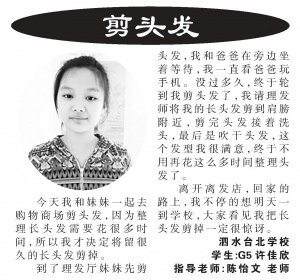 剪头发
今天我和妹妹一起去
购物商场剪头发，因为整
理长头发需要花很多时
间，所以我才决定将留很
久的长头发剪掉。
到了理发厅妹妹先剪
头发，我和爸爸在旁边坐
着等待，我一直看爸爸玩
手机。没过多久，终于轮
到我剪头发了，我请理发
师将我的长头发剪到肩膀
附近，剪完头发接着洗
头，最后是吹干头发，这
个发型我很满意，终于不
用再花这么多时间整理头
发了。
离开离发店，回家的
路上，我不停的想明天一
到学校，大家看见我把长
头发剪掉一定很惊讶。
泗水台北学校
学生：G5 许佳欣
指导老师：陈怡文 老师